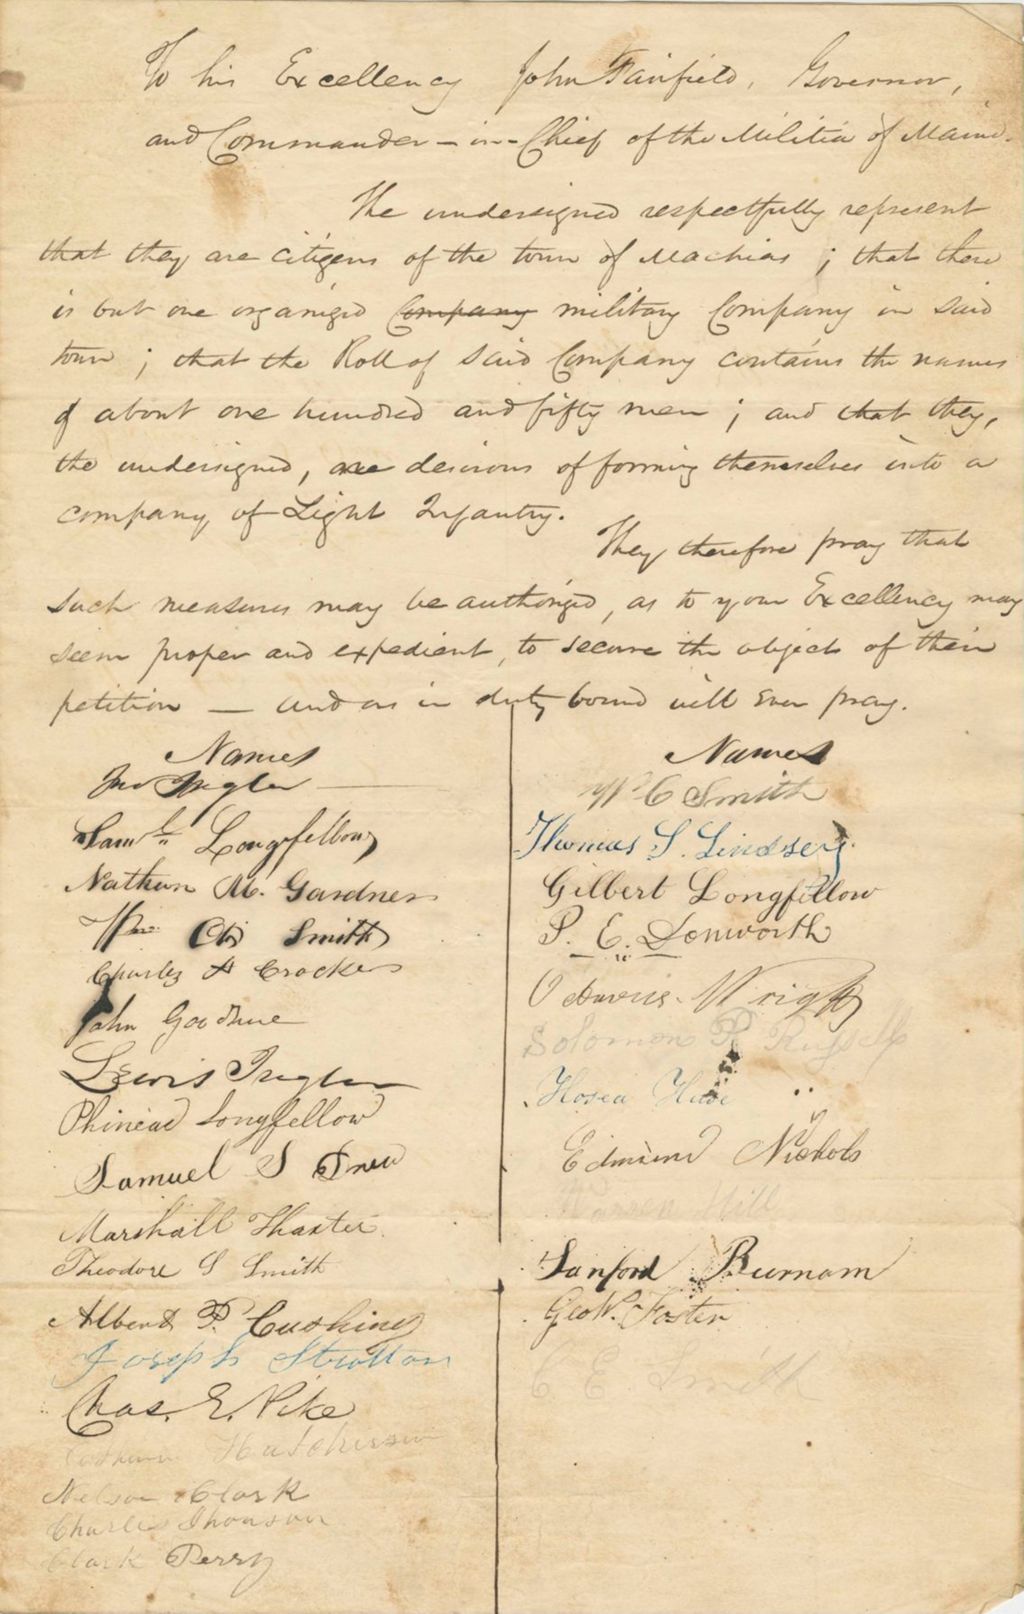 To his Excellency John Fairfield, Governor,
and Commander-in-Chief of the Militia of Maine.
The undersigned respectfully represent
that they are citizens of the town of Machias; that there
is but one organized Company military Company in said
town; that the Roll of said Company contains the names
of about one hundred and fifty men; and that they,
the undersigned, are desirous of forming themselves into a
company of Light Infantry.
They therefore pray that
such measures may be authorized, as to your Excellency may
seem proper and expedient, to secure the object of their
petition — and as in duty bound will ever pray.
Names
Jno
Saml. Longfellow
Nathan M. Gardner
Wm. Smith
Charles A Crocker
John Goodhue
Lewis
Phineas Longfellow
Samuel S Drew
Marshall Thaxter.
Theodore S Smith
Albert P. Cushing
Joseph Stratton
Chas. E. Pike
Hutchinson
Nelson Clark
Charles
Clark Perry
Names
W C Smith
Thomas S. Lindsey.
Gilbert Longfellow
P. E. Donworth
Octavius Wright
Solomon R Russell
Hosea
Edmund Nichols
Warren Hill
Sanford Burnam
Geo W. Foster
C E. Smith